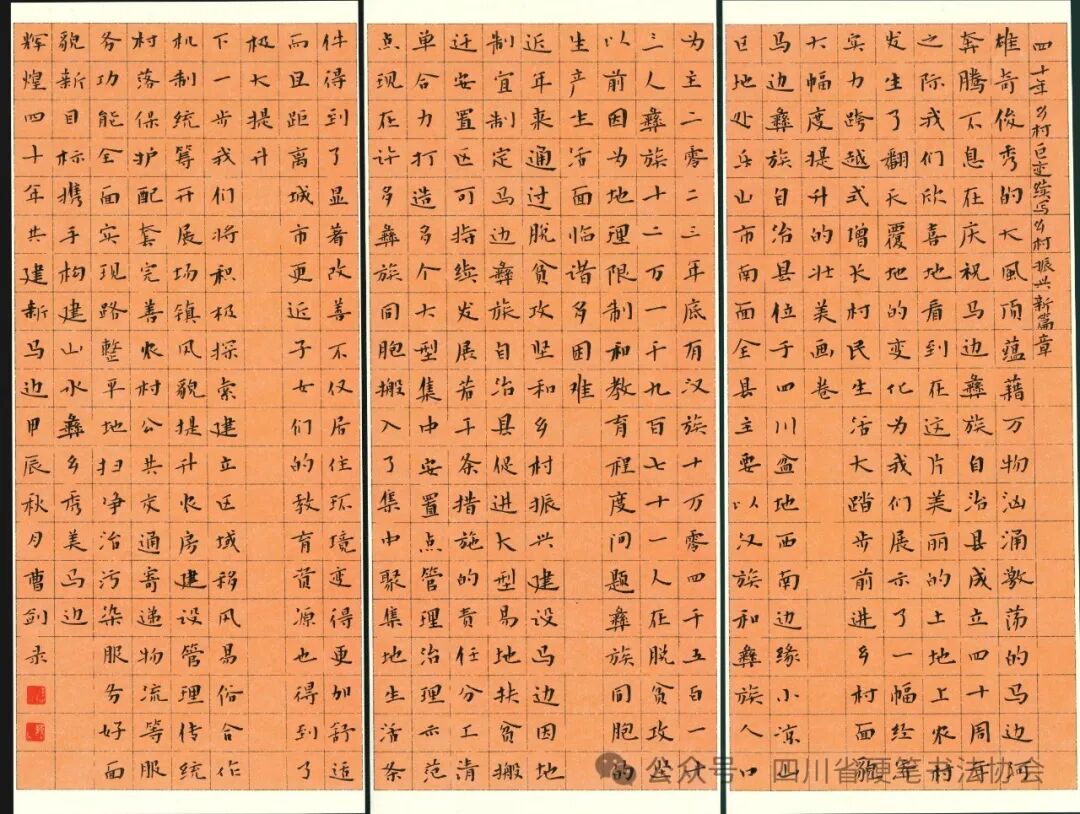 四十年乡村巨变续写乡村振兴新篇章
雄奇俊秀的大风顶蕴藉万物汹涌激荡的马边河
奔腾不息在庆祝马边彝族自治县成立四十周年
之际我们欣喜地看到在这片美丽的土地上农村
发生了翻天覆地的变化为我们展示了一幅经济
实力跨越式增长村民生活大踏步前进乡村面貌
大幅度提升的壮美画卷
马边彝族自治县位于四川盆地西南边缘小凉山
区地处乐山市南面全县主要以汉族和彝族人口
为主二零二三年底有汉族十万零四千五百一十
三人彝族十二万一千九百七十一人在脱贫攻坚
以前因为地理限制和教育程度问题彝族同胞的
生产生活面临诸多困难
近年来通过脱贫攻坚和乡村振兴建设马边因地
制宜制定马边彝族自治县促进大型易地扶贫搬
迁安置区可持续发展若干条措施的责任分工清
单合力打造多个大型集中安置点管理治理示范
点现在许多彝族同胞搬入了集中聚集地生活条
件得到了显著改善不仅居住环境变得更加舒适
而且距离城市更近子女们的教育资源也得到了
极大提升
下一步我们将积极探索建立区域移风易俗合作
机制统筹开展场镇风貌提升农房建设管理传统
村落保护配套完善农村公共交通寄递物流等服
务功能全面实现路整平地扫净治污染服务好面
貌新目标携手构建山水彝乡秀美马边
辉煌四十年共建新马边甲辰秋月曹剑录
公众号 四川省硬笔书法协会